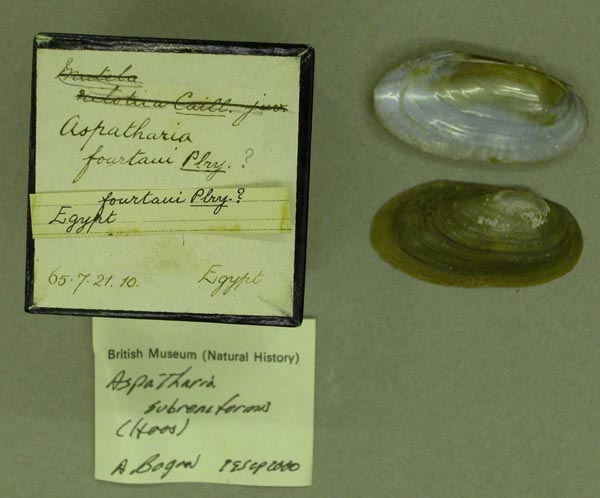 Mutela
nilotica Caill. juv.
Aspatharia
fourtaui Plry. ?
fourtaui Plry.?
Egypt
65.7.21.10. Egypt
British Museum (Natural History)
Aspatharia
subreniformis
(Hoos)
A Bogan